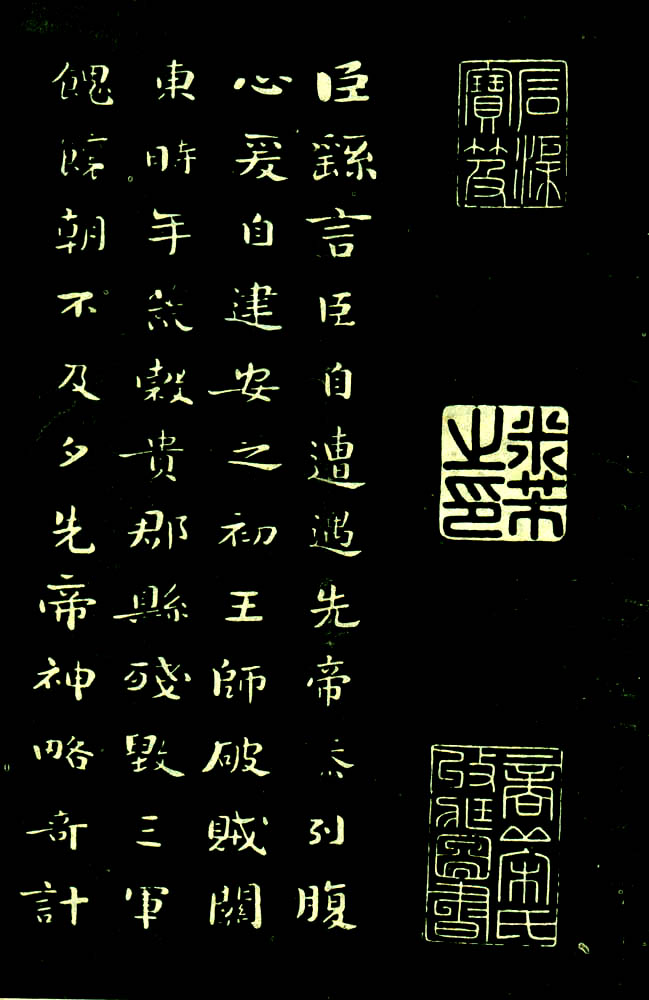 石渠寶笈
米芾之印
臣繇言臣自遭遇先帝忝列腹
心爰自建安之初王師破賊關
東時年荒穀貴郡縣殘毀三軍
餽饟朝不及夕先帝神略奇計